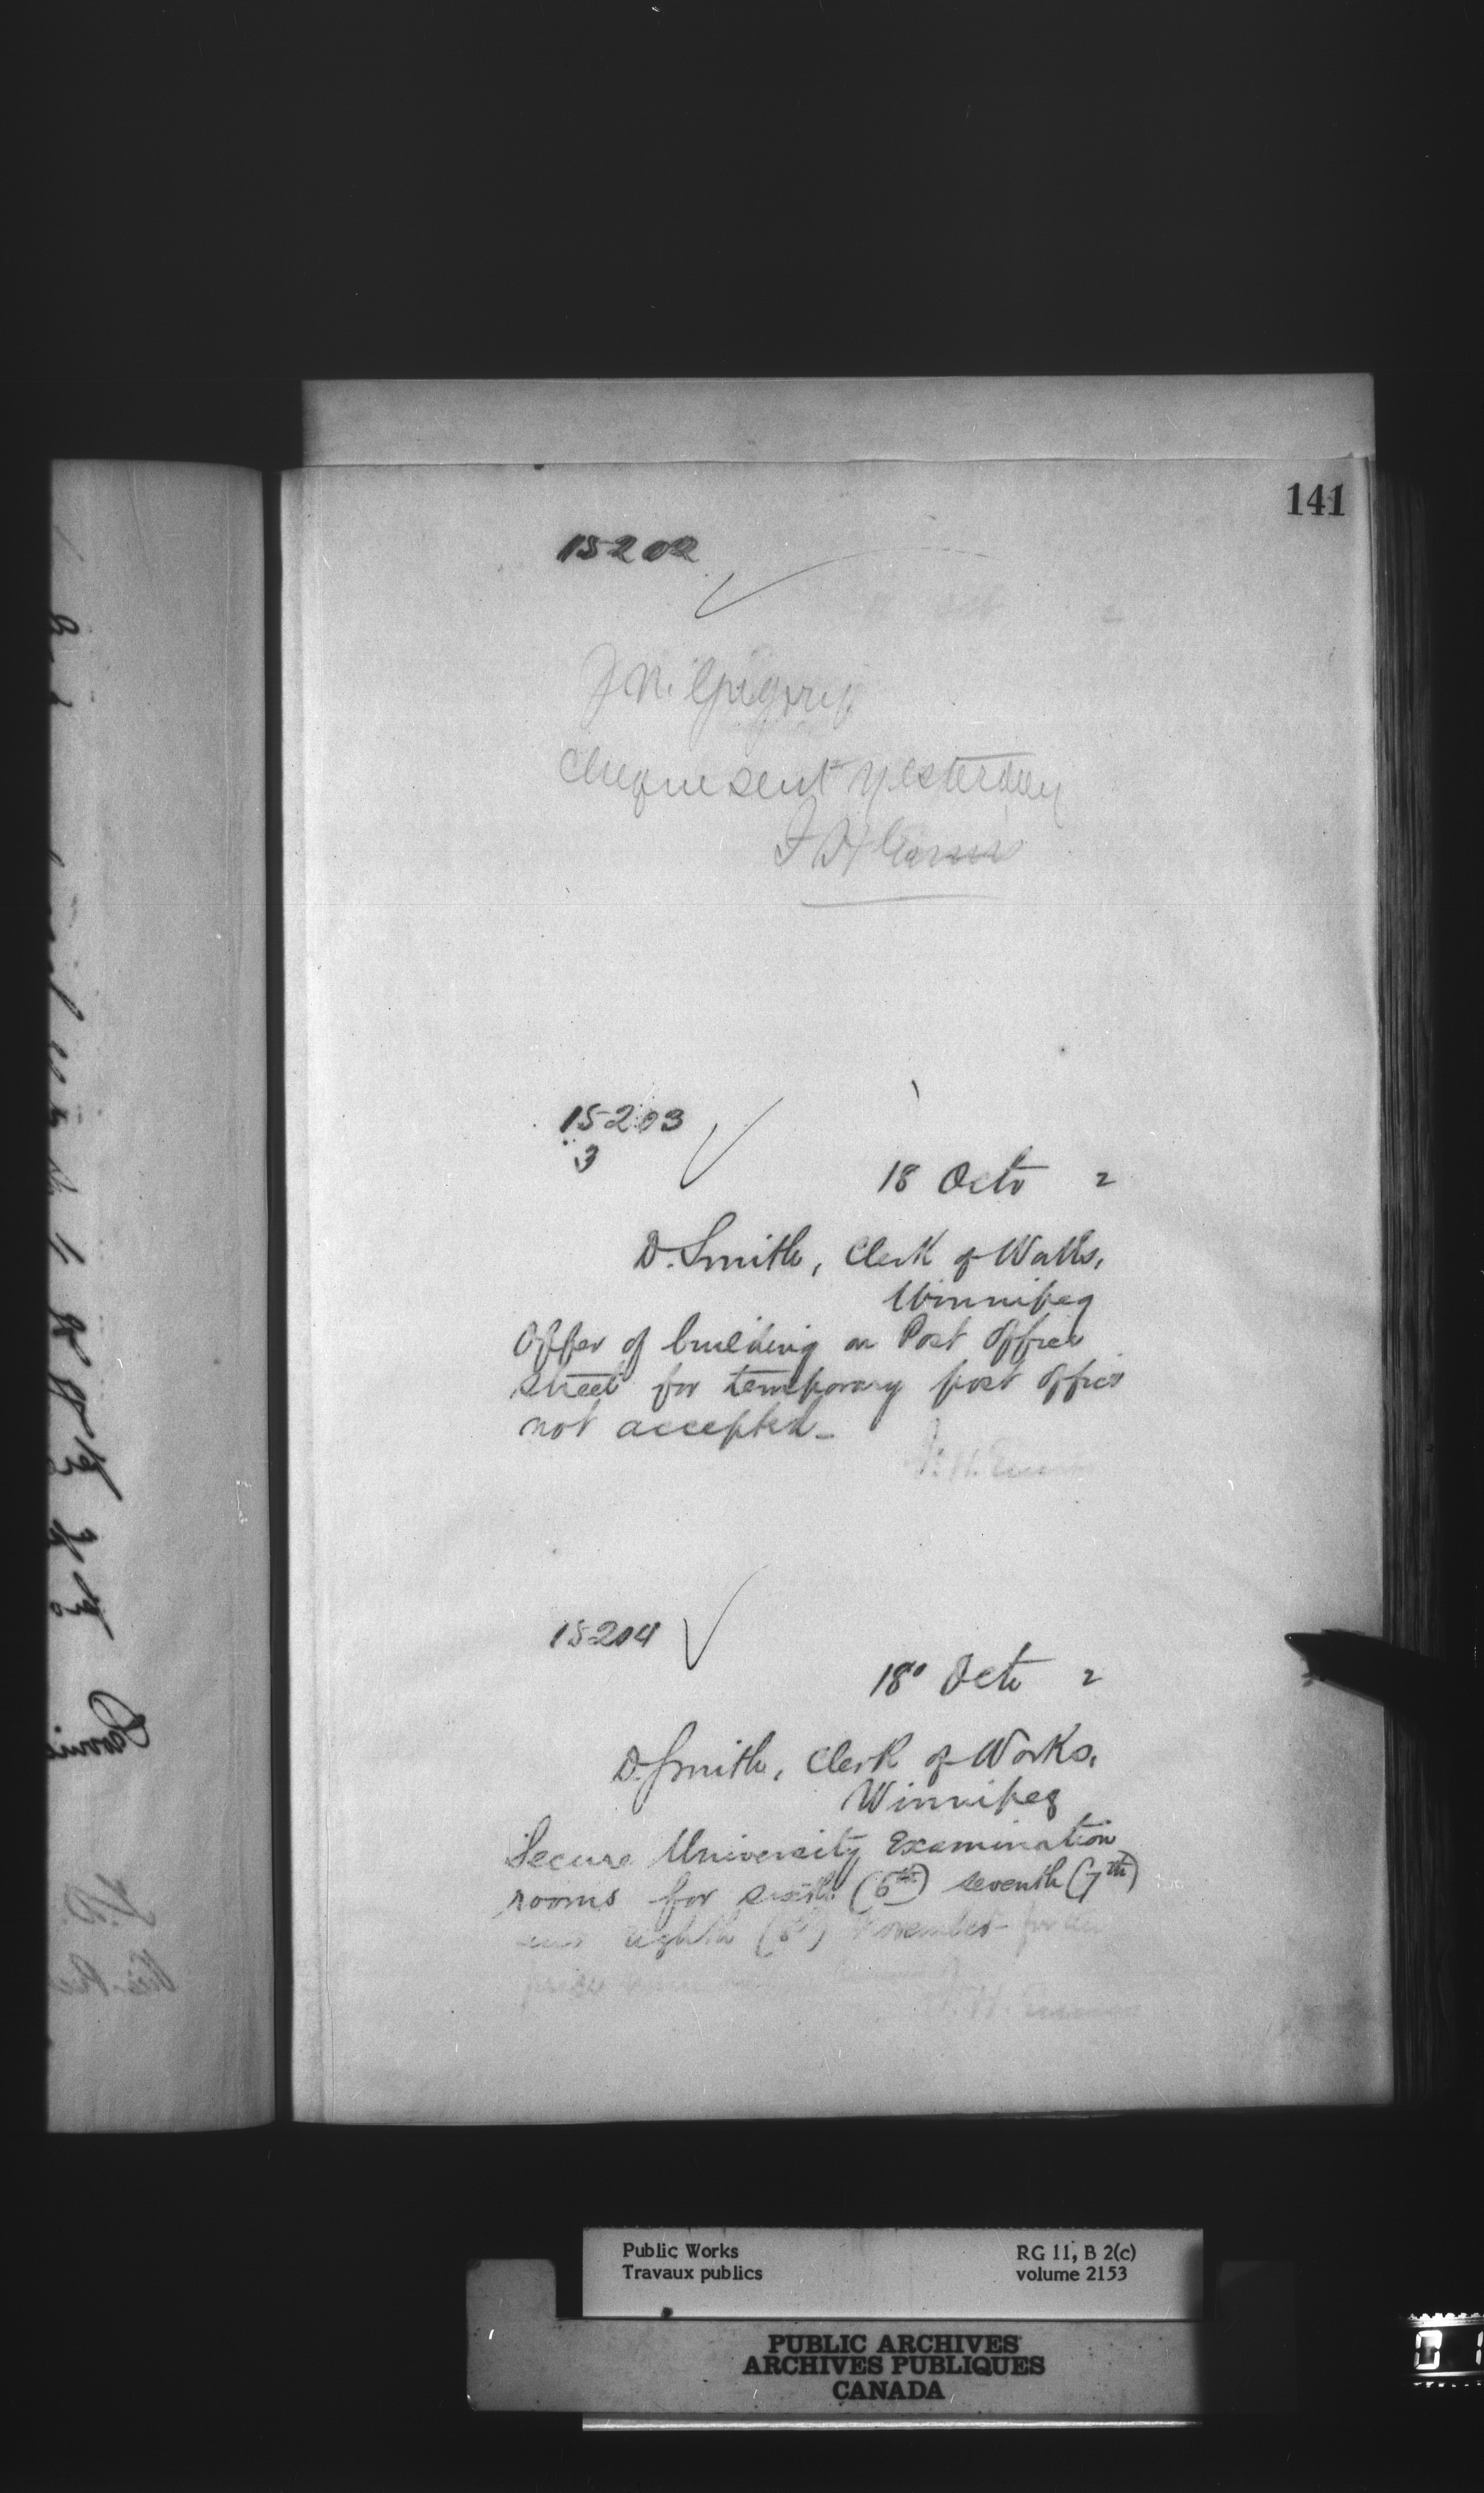 141
15202
J. N. Gregory
Cheque sent yesterday
F H Ennis
15203
3
18 Octo 2
D. Smith, Clerk of Works,
Winnipeg
Offer of building on Post Office
street for temporary post office
not accepted_
F. H. Ennis
15204
18" Octo 2
D. Smith, Clerk of Works,
Winnipeg
Secure University Examination
rooms for sixth (6th) seventh (7th)
and eighth (8th) November for
price
F. H. Ennis
Public Works
Travaux publics
RG 11, B 2(c)
volume 2153
PUBLIC ARCHIVES
ARCHIVES PUBLIQUES
CANADA